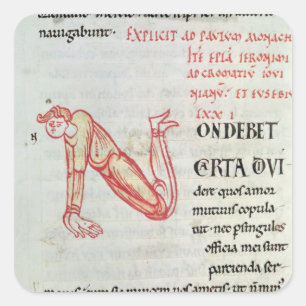 navigabunt.
EXPLICIT AD PAVLVM MONACH
ITE EPLA IERONIMI
AD CROMATIV IOVI
NIANV. ET EVSEBIV
LXX I
N
ON DEBET
CARTA DIVI
dere quos amor
mutuus copula
uit. nec p singulos
officia mei sunt
partienda ser